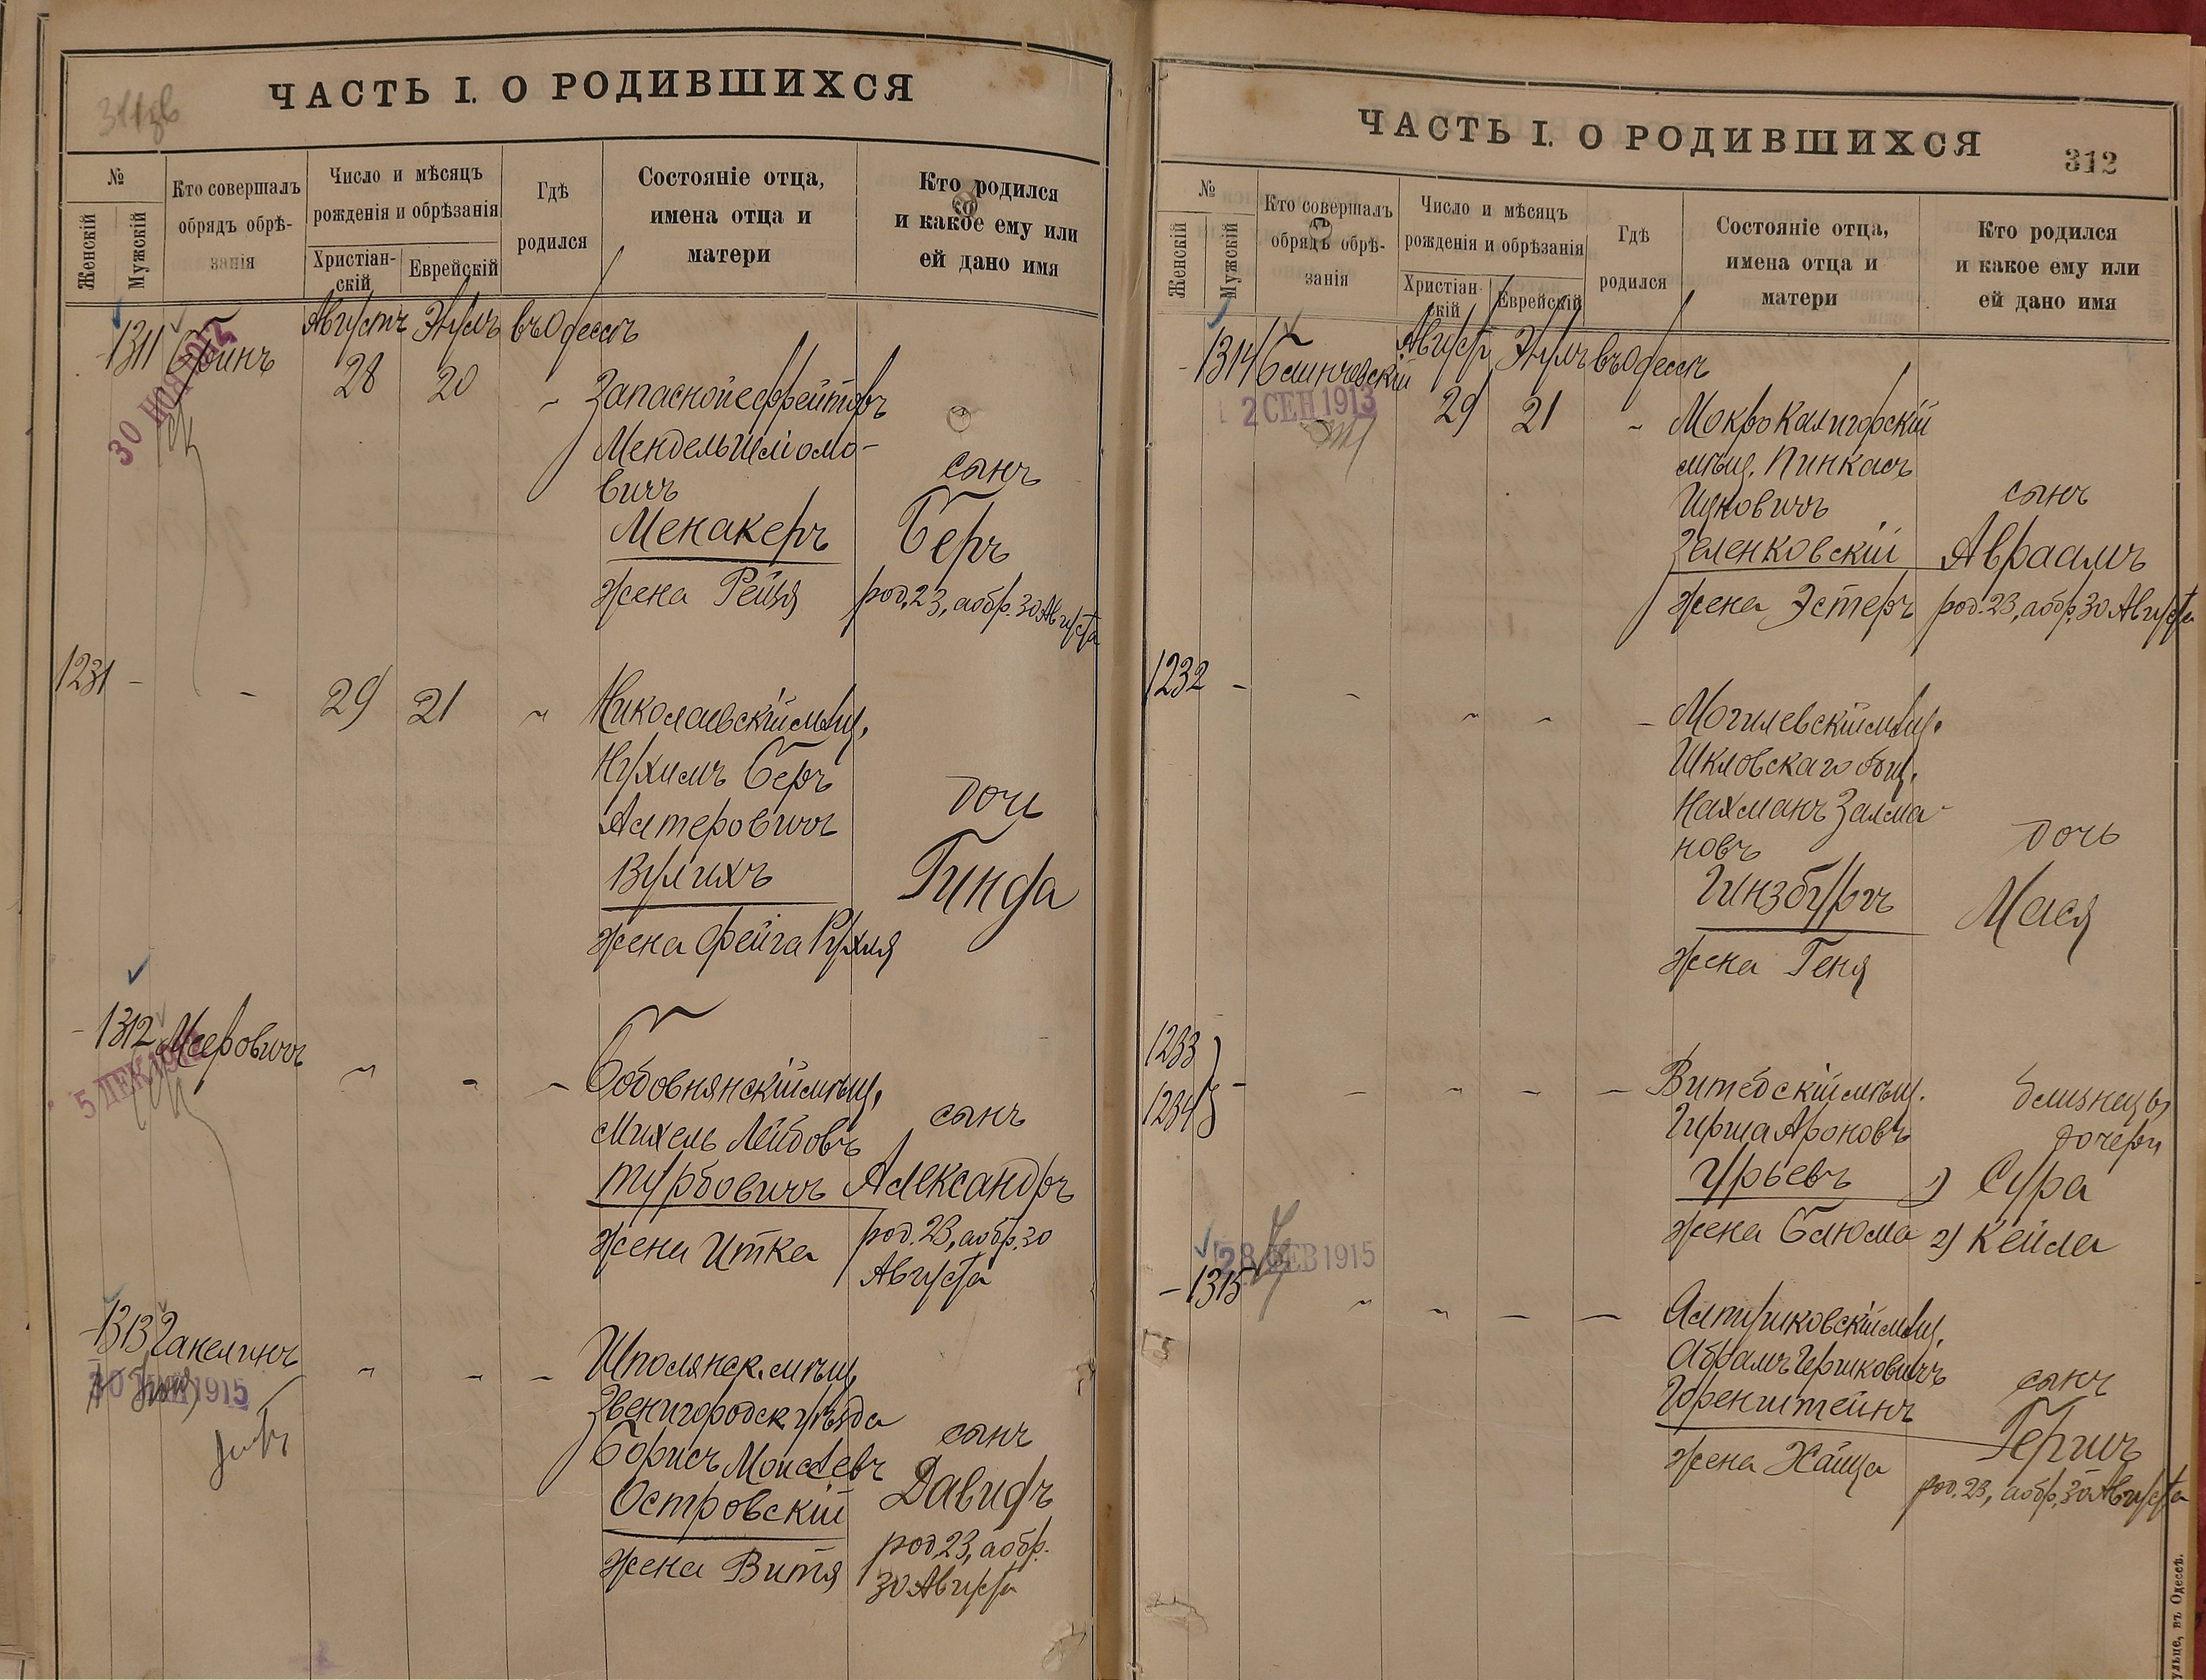 ЧАСТЬ I. О РОДИВШИХСЯ
№
Женскій
Мужскій
Кто совершалъ
обрядъ обрѣ-
занія
Число и мѣсяцъ
рожденія и обрѣзанія
Христіан-
скій
Еврейскій
Гдѣ
родился
Состояніе отца,
имена отца и
матери
Кто родился
и какое ему или
ей дано имя
Августъ Элулъ въ Одессѣ
- 1311
28 20 "
Запасной ефрейторъ
Мендель Шліомо-
вичъ
Менакеръ
жена Рейзя
сынъ
Беръ
род. 23, а обр. 30 Августа
1231 - - 29 21 "
Николаевскій мѣщ.
Нухимъ Беръ
Алтеровичъ
Вулихъ
жена Фейга Рухля
дочь
Гинда
- 1312 Мееровичъ " " "
Бобовнянскій мѣщ.
Михель Лейбовъ
Турбовичъ
жена Итка
сынъ
Александръ
род. 23, а обр. 30
Августа
- 1313 Ганелинъ " " "
1915
Шполянск. мѣщ.
Звенигородск. уѣзда
Борисъ Моисеевъ
Островскій
жена Витя
сынъ
Давидъ
род. 23, а обр.
30 Августа
ЧАСТЬ I. О РОДИВШИХСЯ
312
№
Женскій
Мужскій
Кто совершалъ
обрядъ обрѣ-
занія
Число и мѣсяцъ
рожденія и обрѣзанія
Христіан-
скій
Еврейскій
Гдѣ
родился
Состояніе отца,
имена отца и
матери
Кто родился
и какое ему или
ей дано имя
Август Элулъ въ Одессѣ
- 1314
2 СЕН 1913
29 21 "
Мокро Калигорскій
мѣщ. Пинкасъ
Ицковичъ
Зеленковскій
жена Эстеръ
сынъ
Авраамъ
род. 23, а обр. 30 Августа
1232 - " " " "
Могилевскій мѣщ.
Шкловскаго общ.
Нахманъ Залма-
новъ
Гинзбургъ
жена Геня
дочь
Мася
1233
1234 - " " " "
Витебскій мѣщ.
Гирша Ароновъ
Урьевъ
жена Блюма
близнецы
дочери
1) Сура
2) Кейла
28 ФЕВ 1915
- 1315 " " " "
Абрамъ Гершковичъ
Горенштейнъ
жена
сынъ
Гершъ
род. 23, а обр. 30 Августа
въ Одессѣ.